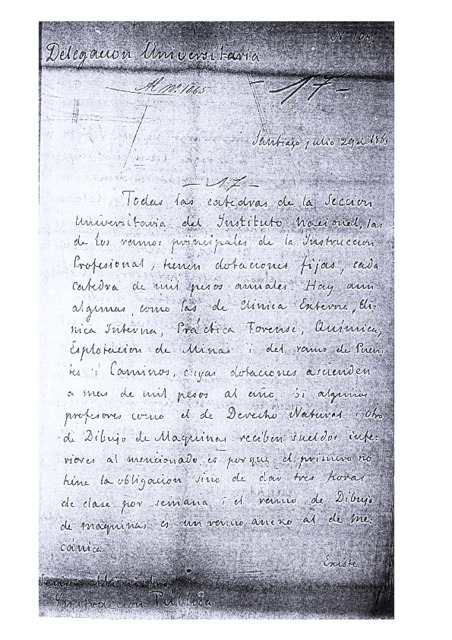 Delegacion Universitaria
Al Nº 1085
— 17 —
Santiago, julio 29 de 186
— 17 —
Todas las catedras de la Seccion
Universitaria del Instituto Nacional, las
de los ramos principales de la Instruccion
Profesional, tienen dotaciones fijas, cada
catedra de mil pesos anuales. Hay aun
algunas, como las de Clinica Externa, Cli-
nica Interna, Práctica Forense, Quimica,
Esplotacion de Minas i del ramo de Puen-
tes i Caminos, cuyas dotaciones ascienden
a mas de mil pesos al año. Si algunos
profesores como el de Derecho Natural i otro
de Dibujo de Maquinas reciben sueldos infe-
riores al mencionado es porque el primero no
tiene la obligacion sino de dar tres horas
de clase por semana i el ramo de Dibujo
de maquinas es un ramo anexo al de me-
cánica.
Existe
Instruccion Pública